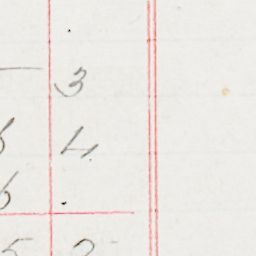 3
6 4
6 .
5 2